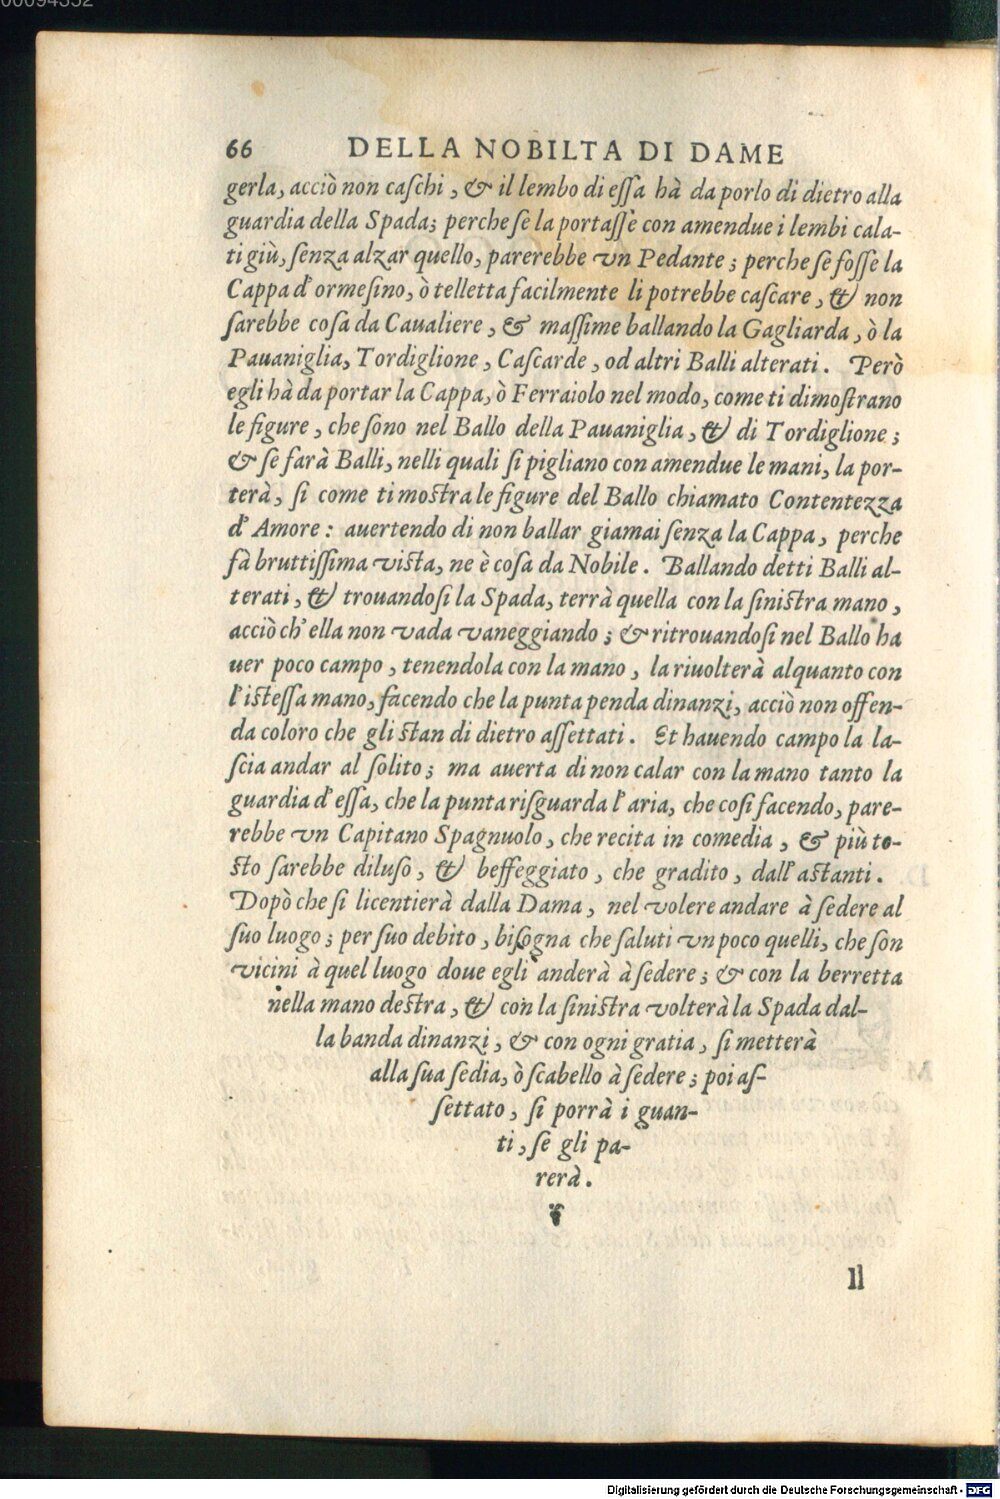 66 DELLA NOBILTA DI DAME
gerla, acciò non caſchi, & il lembo di eſſa hà da porlo di dietro alla
guardia della Spada; perche ſe la portaſſe con amendue i lembi cala-
ti giù, ſenza alzar quello, parerebbe vn Pedante; perche ſe foſſe la
Cappa d'ormeſino, ò telletta facilmente li potrebbe caſcare, & non
ſarebbe coſa da Caualiere, & maſſime ballando la Gagliarda, ò la
Pauaniglia, Tordiglione, Caſcarde, od altri Balli alterati. Però
egli hà da portar la Cappa, ò Ferraiolo nel modo, come ti dimoſtrano
le figure, che ſono nel Ballo della Pauaniglia, & di Tordiglione;
& ſe farà Balli, nelli quali ſi pigliano con amendue le mani, la por-
terà, ſi come ti moſtra le figure del Ballo chiamato Contentezza
d'Amore: auertendo di non ballar giamai ſenza la Cappa, perche
fà bruttiſſima viſta, ne è coſa da Nobile. Ballando detti Balli al-
terati, & trouandoſi la Spada, terrà quella con la ſiniſtra mano,
acciò ch'ella non vada vaneggiando; & ritrouandoſi nel Ballo ha
uer poco campo, tenendola con la mano, la riuolterà alquanto con
l'iſteſſa mano, facendo che la punta penda dinanzi, acciò non offen-
da coloro che gli ſtan di dietro aſſettati. Et hauendo campo la la-
ſcia andar al ſolito; ma auerta di non calar con la mano tanto la
guardia d'eſſa, che la punta riſguarda l'aria, che coſi facendo, pare-
rebbe vn Capitano Spagnuolo, che recita in comedia, & più to-
ſto ſarebbe diluſo, & beffeggiato, che gradito, dall'aſtanti.
Dopò che ſi licentierà dalla Dama, nel volere andare à ſedere al
ſuo luogo; per ſuo debito, biſogna che ſaluti vn poco quelli, che ſon
vicini à quel luogo doue egli anderà à ſedere; & con la berretta
nella mano deſtra, & con la ſiniſtra volterà la Spada dal-
la banda dinanzi, & con ogni gratia, ſi metterà
alla ſua ſedia, ò ſcabello à ſedere; poi aſ-
ſettato, ſi porrà i guan-
ti, ſe gli pa-
rerà.
Il
Digitalisierung gefördert durch die Deutsche Forschungsgemeinschaft - DFG